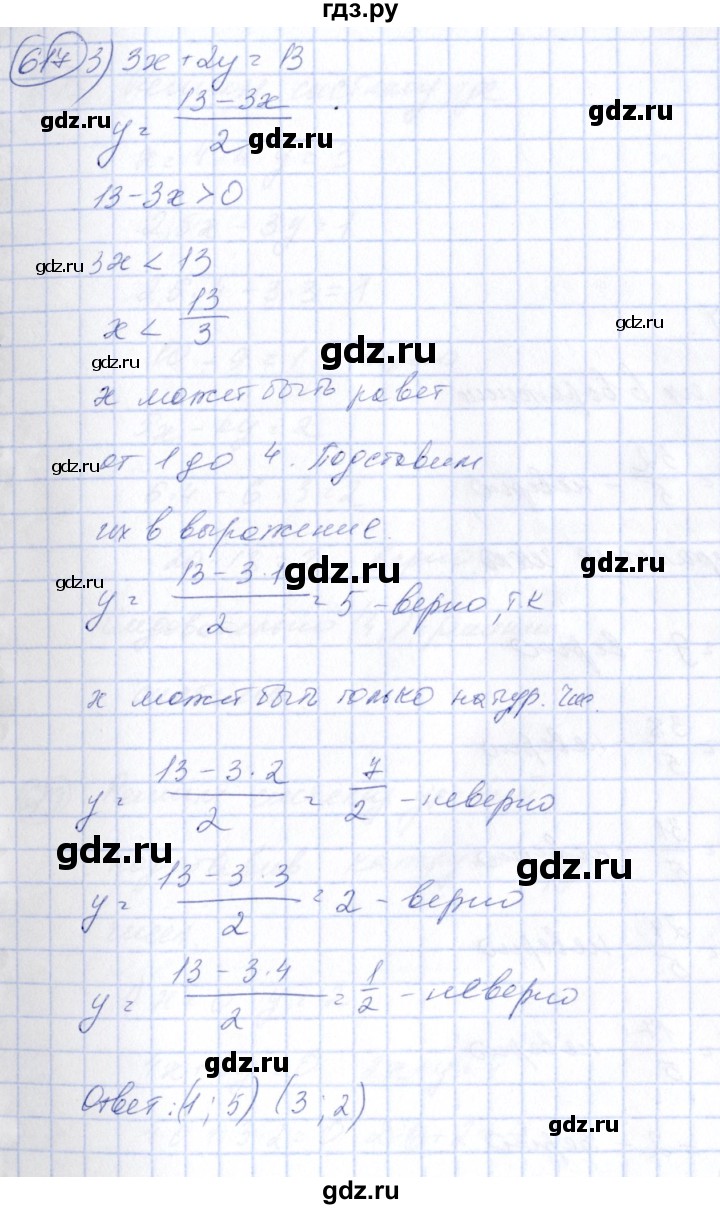 гдз.ру
617 3) 3x + 2y = 13
gdz.ru
gdz.ru
y = (13 - 3x)/2
gdz.ru
13 - 3x > 0
gdz.ru
3x < 13
x < 13/3
gdz.ru
gdz.ru
x может быть равет
от 1 до 4. Подставим
gdz.ru
gdz.ru
их в выражение.
gdz.ru
gdz.ru
gdz.ru
y = (13 - 3·1)/2 = 5 - верно, тк
x может быть только натур. чис.
y = (13 - 3·2)/2 = 7/2 - неверно
gdz.ru
gdz.ru
y = (13 - 3·3)/2 = 2 - верно
y = (13 - 3·4)/2 = 1/2 - неверно
gdz.ru
Ответ: (1; 5) (3; 2)
gdz.ru
gdz.ru